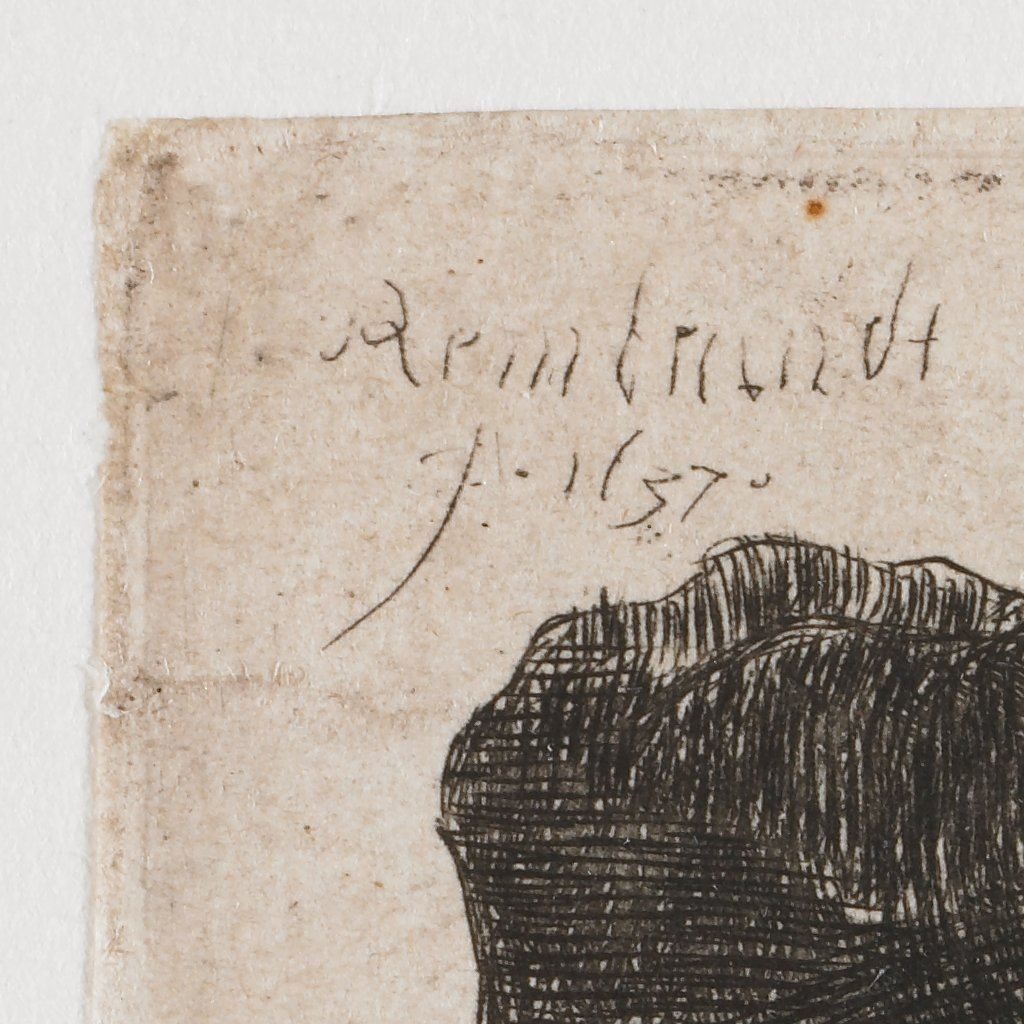 Rembrandt
f. 1637.